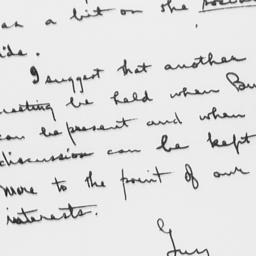 as a bit on the social
ide.
I suggest that another
eeting be held when Bu
can be present and when
discussion can be kept
more to the point of our
interests.
Guy